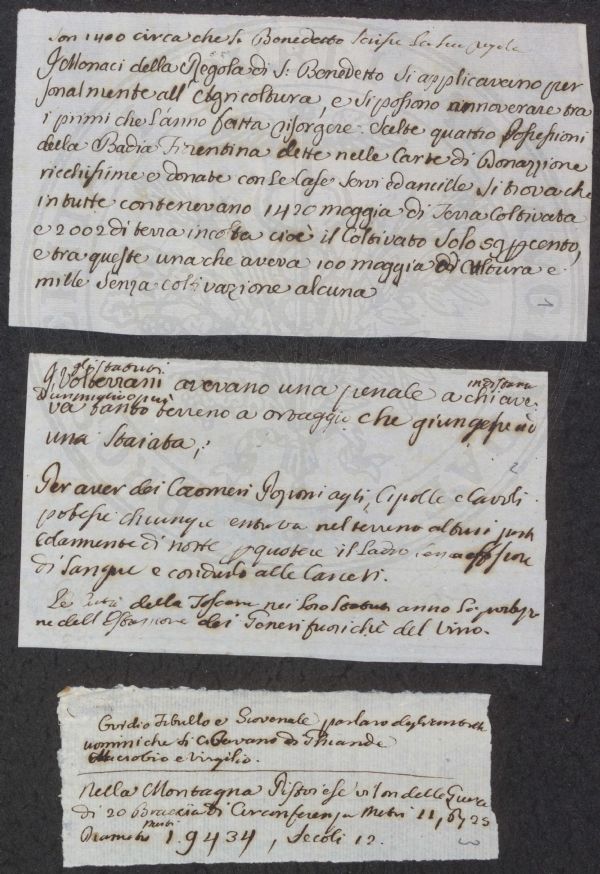 Son 1400 circa che S. Benedetto scrisse la sua regola
I Monaci della Regola di S: Benedetto si applicavano per
sonalmente all'Agricoltura, e si possono annoverare tra
i primi che l'anno fatta risorgere. Salte quattro Possessioni
della Badia Fiorentina dette nelle Carte di Donazzione
ricchissime e donate con le Case servi ed ancille si trova che
in tutte contenevano 1420 moggia di Terra Coltivata
e 2002 di terra incolta cioè il Coltivato solo 59 p cento,
e tra queste una che aveva 100 moggia di Cultura e
mille senza coltivazione alcuna
1
gli Statuti
I Volterrani avevano una penale a chi ave
in distanza
d'un miglio o più
va tanto terreno a ortaggi che giungesse ad
una staiata,
2
Per aver dei Cocomeri Poponi agli, Cipolle e Cavoli
potesse chiunque entrava nel terreno altrui
di notte p quotere il Ladro senza effusione
di Sangue e condurlo alle Carceri.
Le Città della Toscana nei loro Statuti anno la
ne dell'Estrazione dei Generi fuori che del Vino.
Ovidio Tibullo e Giovenale parlano degli
uomini che si cibavano di Ghiande
Macrobio e Virgilio.
Nella Montagna Pistoiese
di 20 Braccia di Circonferenza Metri 11,6723
Diametro Metri 1.9434, Secoli 12.
3